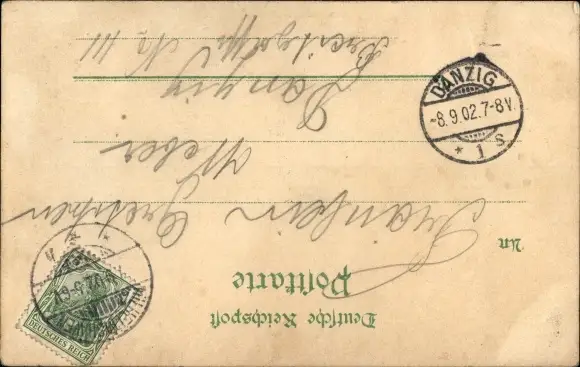 Deutsche Reichspost
Postkarte
An
Fräulein Gretchen
Weber
Danzig
Breitgasse No 111
DANZIG
-8.9.02.7-8V.
* 1 S
DEUTSCHES REICH